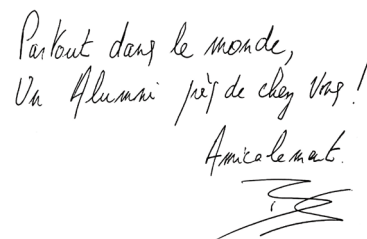 Partout dans le monde,
Un Alumni près de chez vous !
Amicalement.